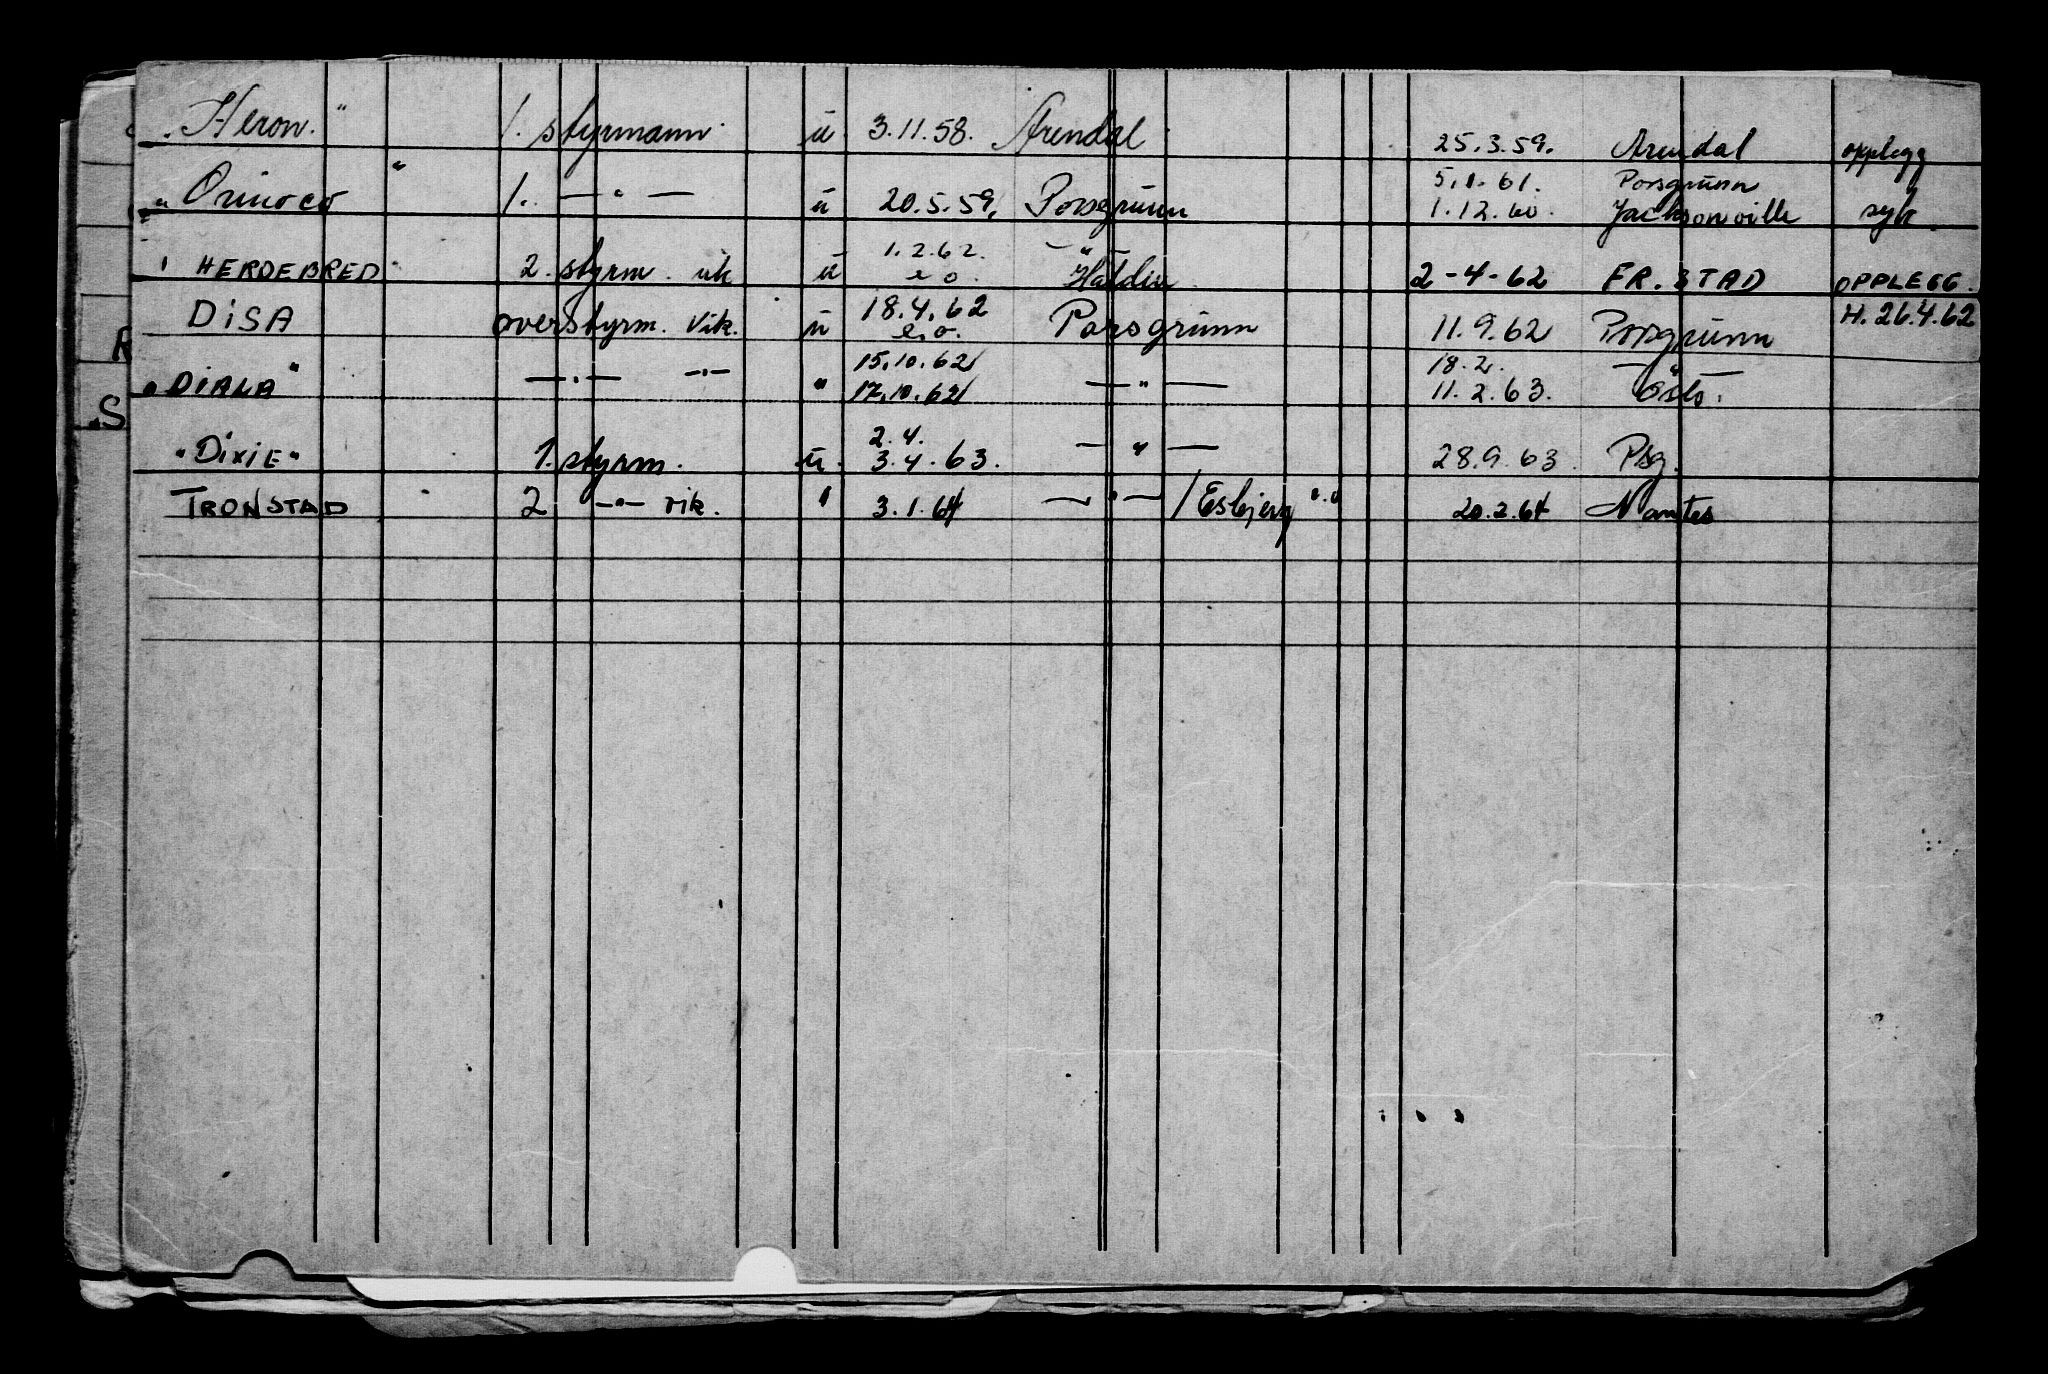 "Heron." 1. styrmann. u 3.11.58. Arendal 25.3.59. Arendal opplegg
5.1.61. Porsgrunn
"Orinoco" 1. — " — u 20.5.59. Porsgrunn 1.12.60. Jacksonville syk
1.2.62. — " —
" HERDEBRED " 2. styrm. vik u e o. Halden 2-4-62 FR.STAD OPPLEGG.
DISA overstyrm. vik. u 18.4.62 Porsgrunn 11.9.62 Porsgrunn H. 26.4.62
e.o.
15.10.62 18.2. — " —
"DIALA" — " — — " — " 17.10.62 — " — 11.2.63. Oslo.
2.4.
"DIXIE" 1. styrm. u. 3.4.63. — " — 28.9.63. Psg.
TRONSTAD 2 — " — vik. " 3.1.64 — " — / Esbjerg "." 20.2.64 Nantes
R
S